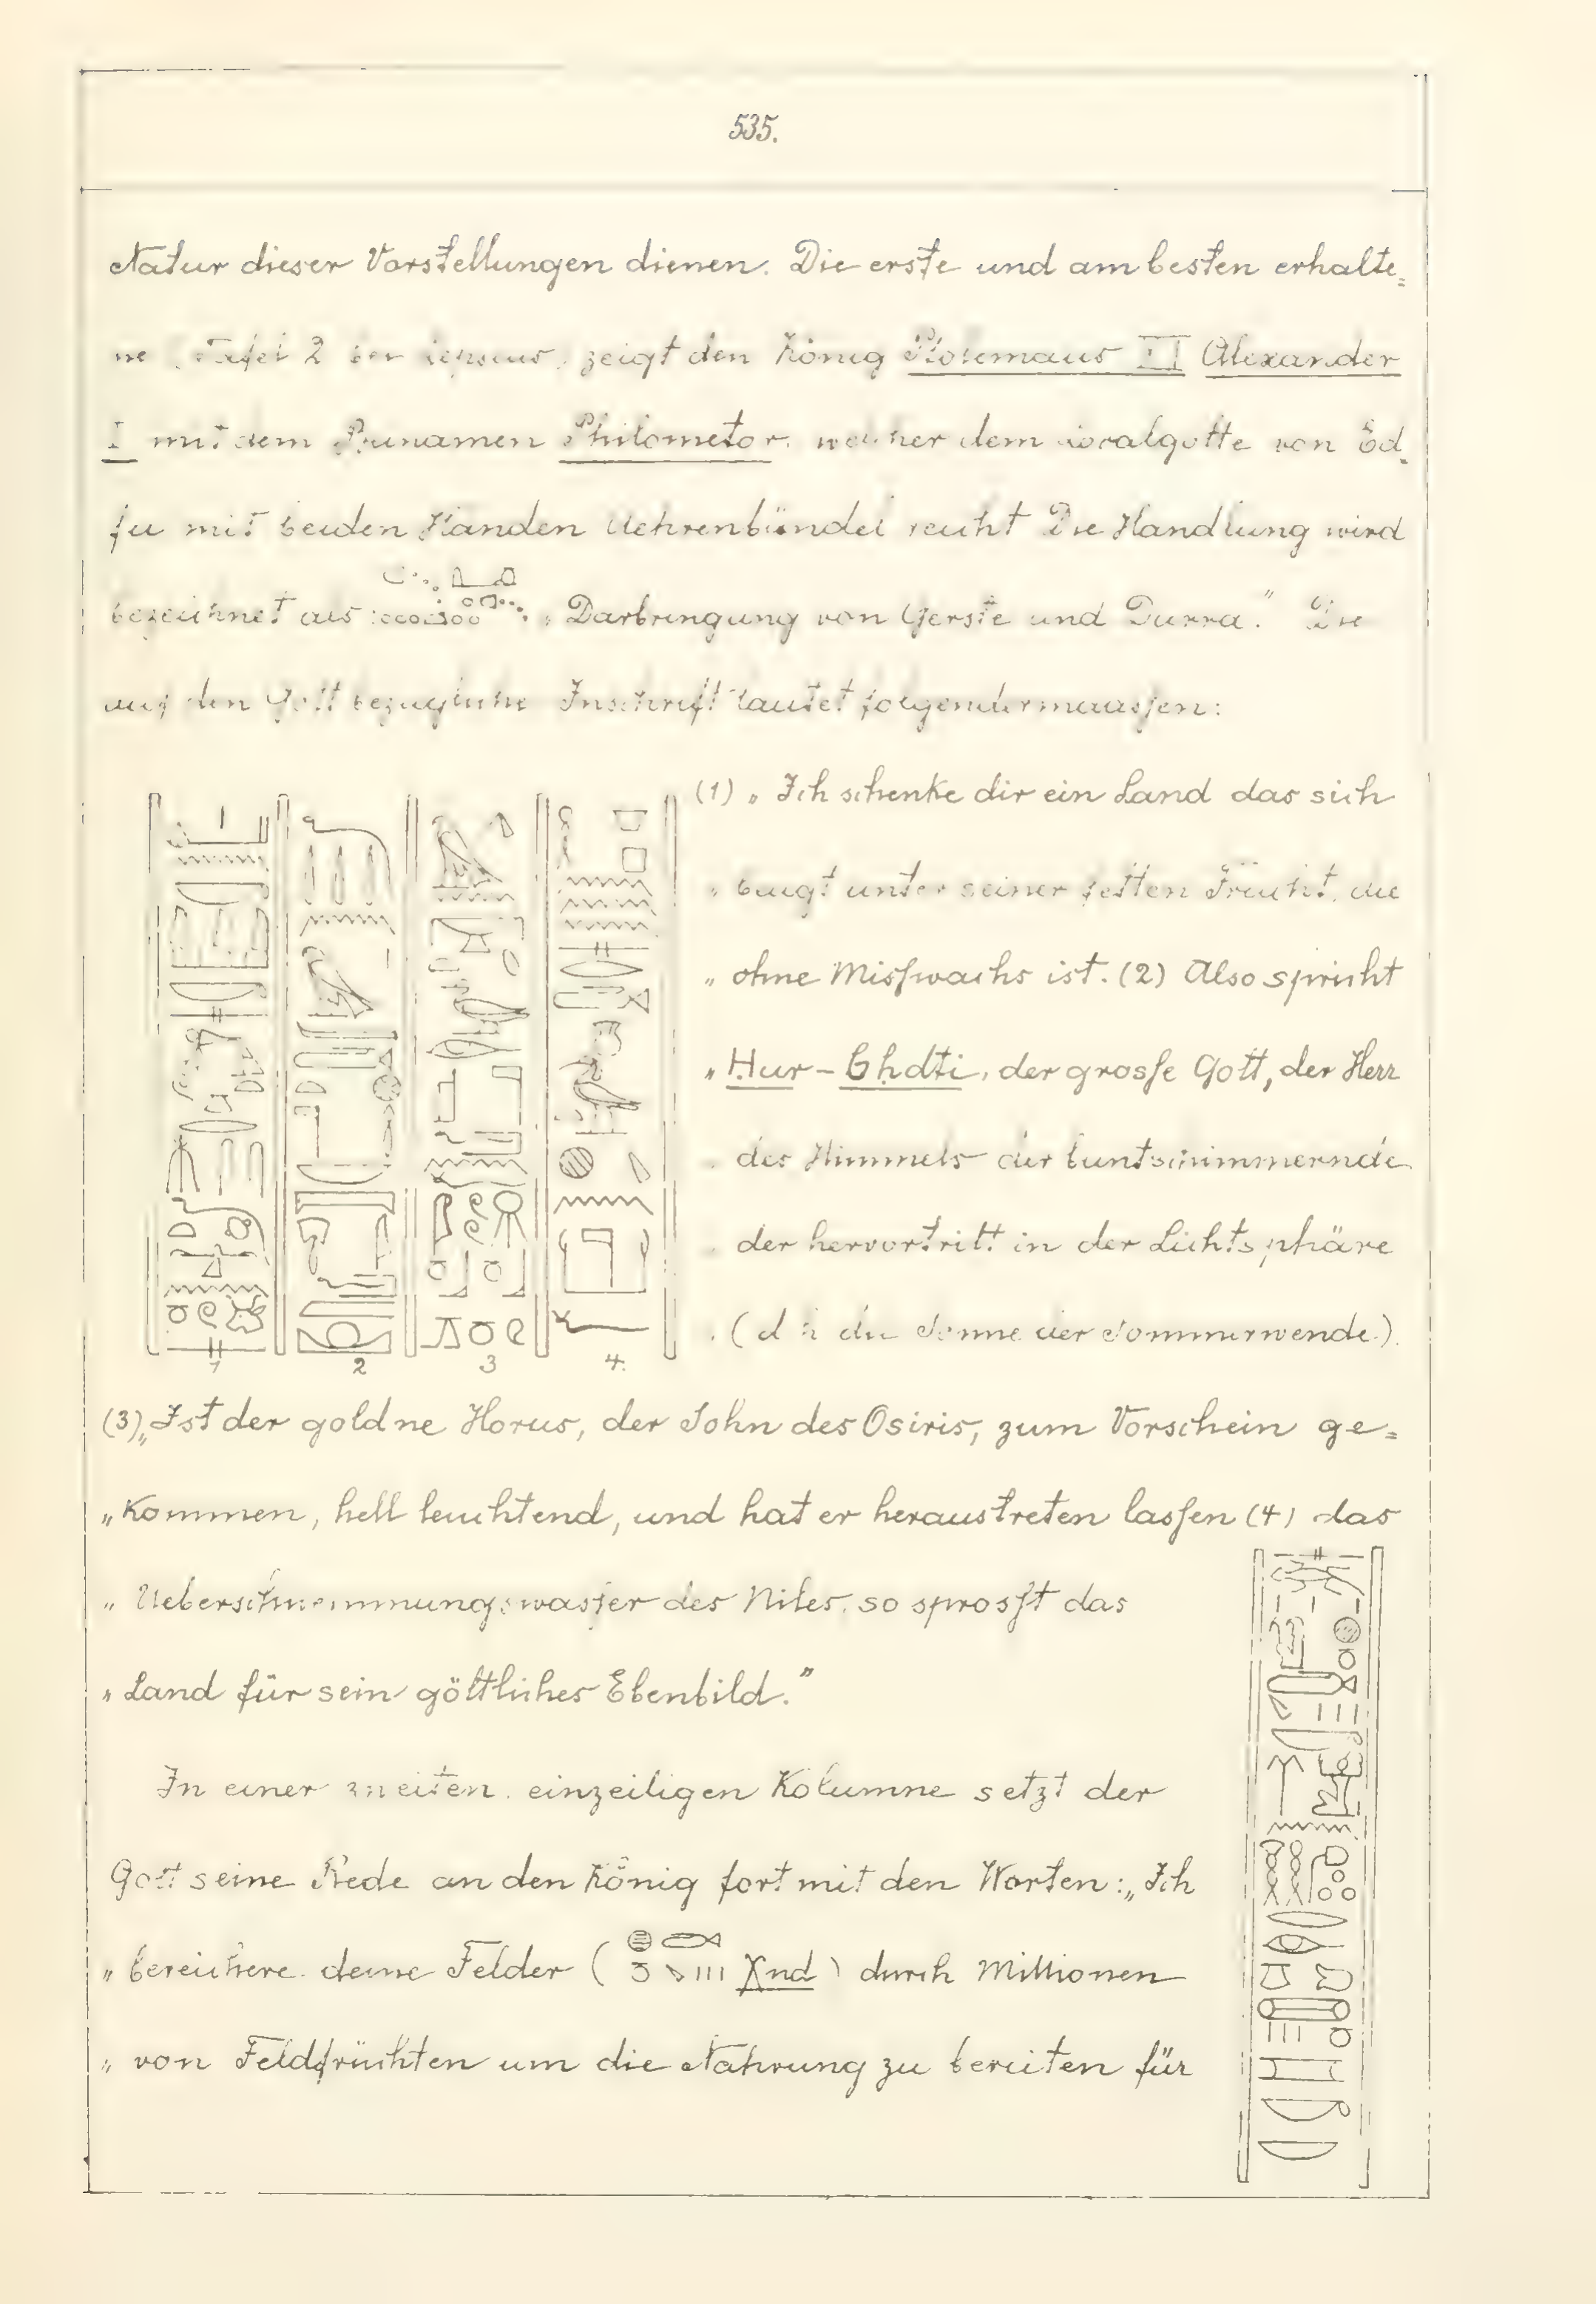 535.
Natur dieser Vorstellungen dienen. Die erste und am besten erhalte=
ne (Tafel 2 bei Lepsius) zeigt den König Ptolemaus XI Alexander
I mit dem Zunamen Philometor, welcher dem Localgotte von Ed=
fu mit beiden Händen Aehrenbündel reicht Die Handlung wird
bezeichnet als „Darbringung von Gerste und Durra." Die
auf den Gott bezügliche Inschrift lautet folgendermaassen:
(1) „Ich schenke dir ein Land das sich
„beugt unter seiner fetten Frucht, die
„ohne Misswachs ist. (2) Also spricht
„Hur-bhdti, der grosse Gott, der Herr
„des Himmels der buntschimmernde
„der hervortritt in der Lichtsphäre
„(d h die Sonne der Sommerwende).
1 2 3 4.
(3) „Ist der goldne Horus, der Sohn des Osiris, zum Vorschein ge=
„kommen, hell leuchtend, und hat er heraustreten lassen (4) das
„Ueberschwemmungswasser des Niles, so sprosst das
„Land für sein göttliches Ebenbild."
In einer zweiten einzeiligen Kolumne setzt der
Gott seine Rede an den König fort mit den Worten: „Ich
„bereichere deine Felder ( χnd ) durch Millionen
„von Feldfrüchten um die Nahrung zu bereiten für